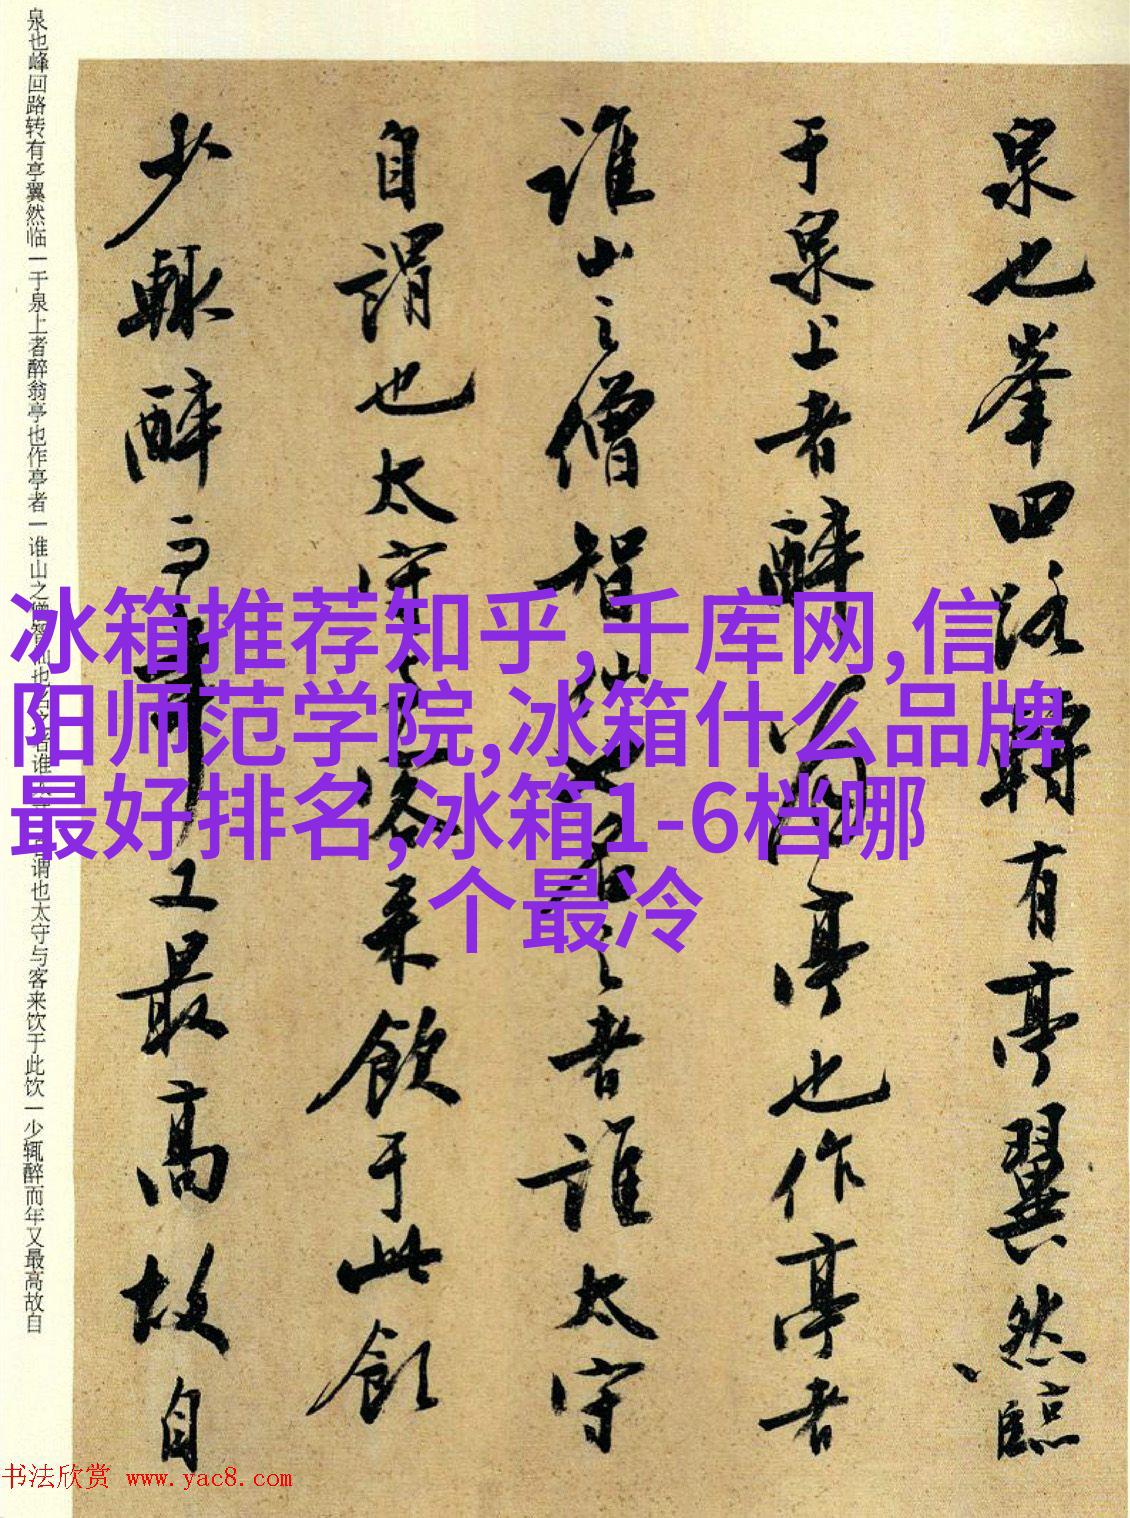 泉也峯回路轉有亭翼然臨
于泉上者醉翁亭也作亭者
誰山之僧智僊也名之者誰太守
自謂也太守与客来飲于此飲
少輒醉而年又最高故自
泉也峰回路转有亭翼然临一于泉上者醉翁亭也作亭者一谁山之僧智仙也名之者谁太守自谓也太守与客来饮于此饮一少辄醉而年又最高故自
冰箱推荐知乎,千库网,信
阳师范学院,冰箱什么品牌
最好排名,冰箱1-6档哪
个最冷
书法欣赏 www.yac8.com